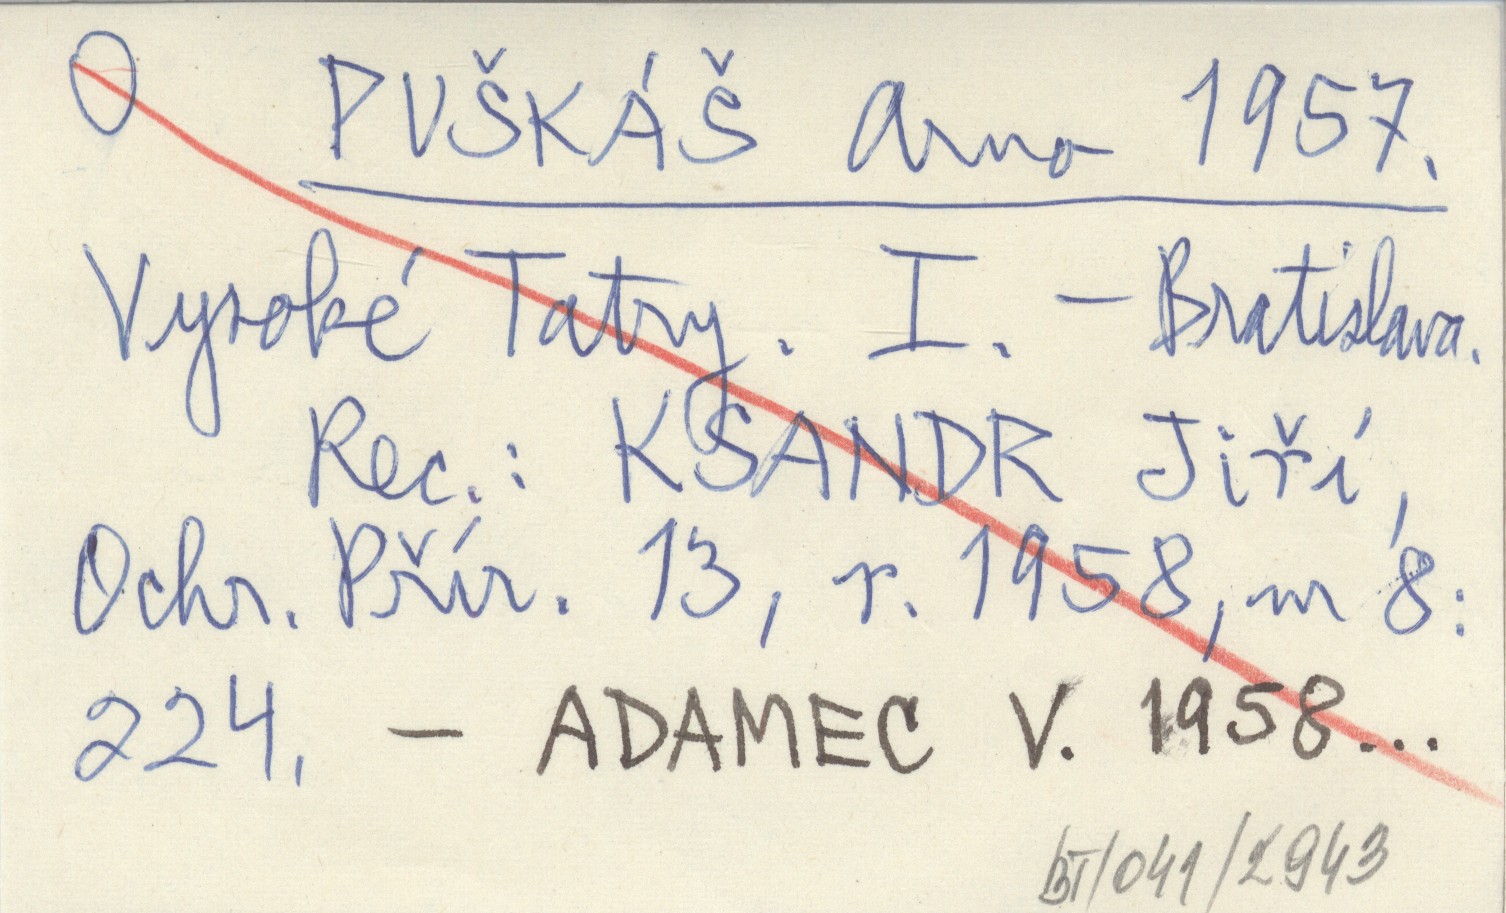 O PUŠKÁŠ Arno 1957.
Vysoké Tatry. I. - Bratislava.
Rec.: KSANDR Jiří,
Ochr. Přír. 13, r. 1958, m 8:
224. - ADAMEC V. 1958...
BT/041/2943